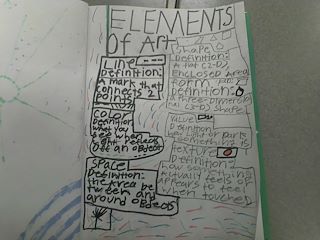 ELEMENTS
Of Art
Line
Definition:
A mark that
connects 2
points
Color
Definition
what you
see when
light reflects
off an object
Space
Definition:
the area be
tween and
around objects
Shape
Definition:
A flat (2-D)
enclosed area
Form
Definition:
A three-dimension
al (3-D) shape
Value
Definition:
how light or dark
something is
Texture
Definition:
how something
actually feels or
appears to feel
when touched